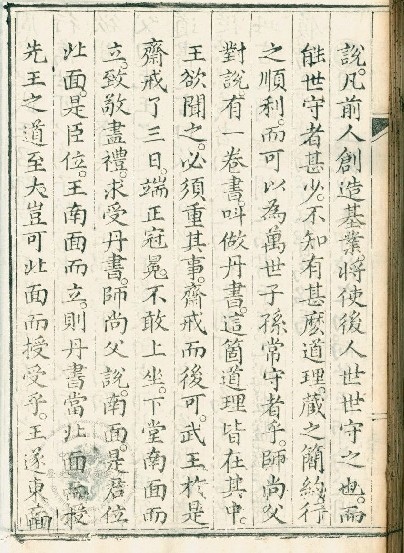 說。凡前人創造基業將使後人世世守之也。而
能世守者甚少。不知有甚麽道理。藏之簡約。行
之順利。而可以為萬世子孫常守者乎。師尚父
對說有一卷書。叫做丹書。這箇道理皆在其中。
王欲聞之。必須重其事。齋戒而後可。武王於是
齋戒了三日。端正冠冕。不敢上坐。下堂南面而
立。致敬盡禮。求受丹書。師尚父說。南面。是君位
北面。是臣位。王南面而立。則丹書當北面而授
先王之道至大豈可北面而授受乎。王遂東面